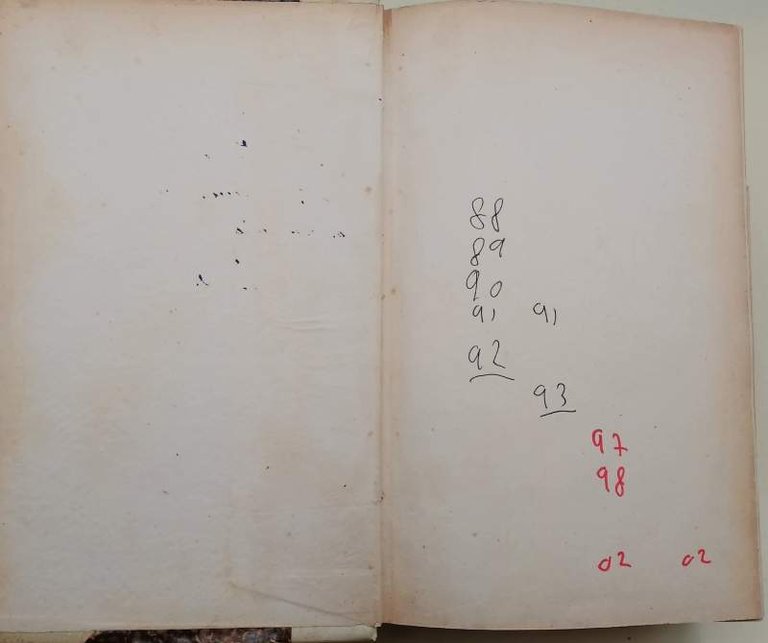 88
89
90
91 91
92
93
97
98
02 02